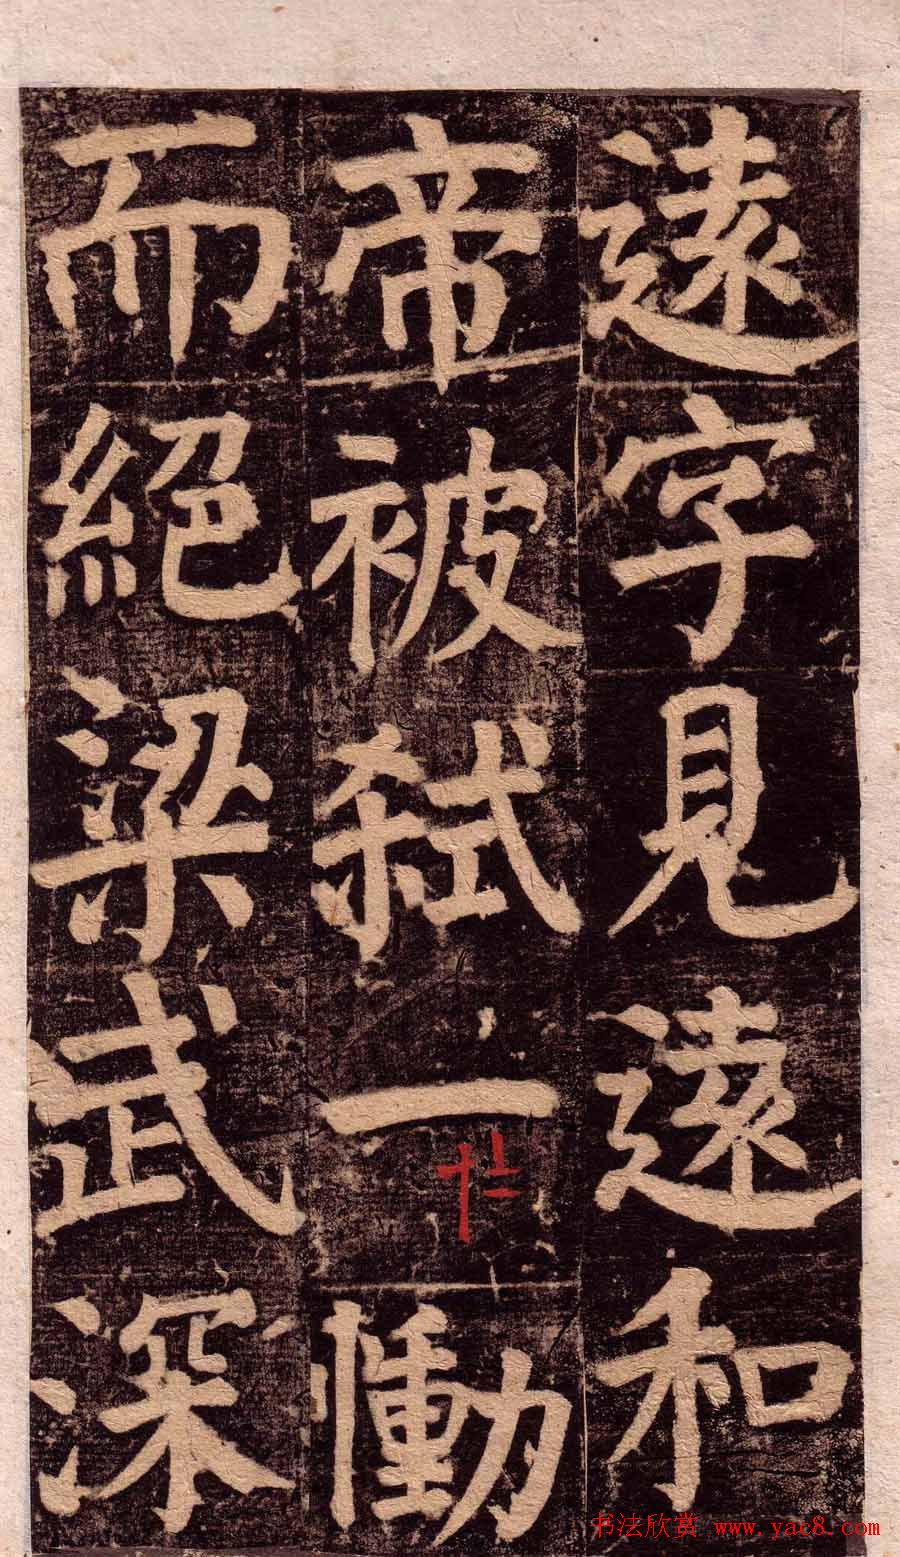 遠字見遠和
帝被弒一慟
而絕梁武深
書法欣赏 www.yac8.com